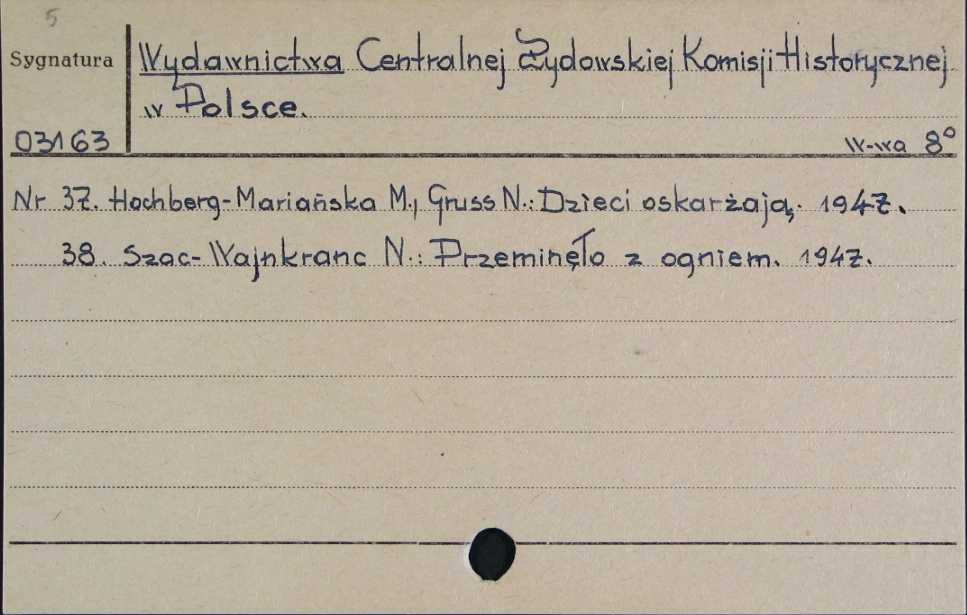 5
Sygnatura Wydawnictwa Centralnej Żydowskiej Komisji Historycznej
w Polsce.
03163 W-wa 8°
Nr 37. Hochberg-Mariańska M., Gruss N.: Dzieci oskarżają. 1947.
38. Szac-Wajnkranc N.: Przeminęło z ogniem. 1947.